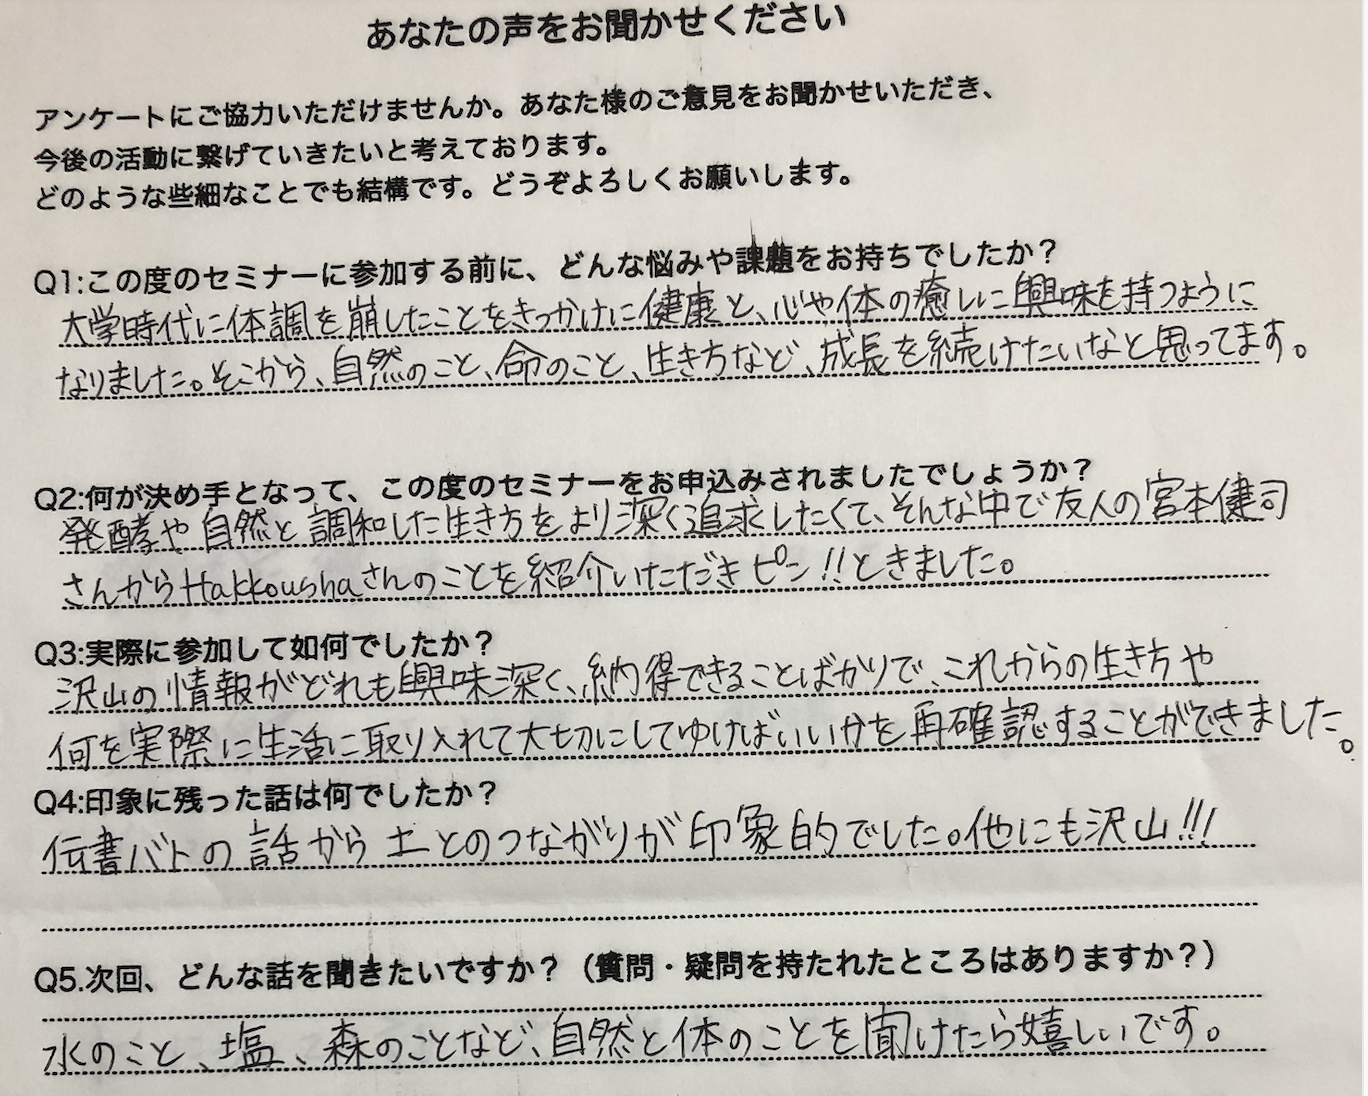 あなたの声をお聞かせください
アンケートにご協力いただけませんか。あなた様のご意見をお聞かせいただき、
今後の活動に繋げていきたいと考えております。
どのような些細なことでも結構です。どうぞよろしくお願いします。
Q1:この度のセミナーに参加する前に、どんな悩みや課題をお持ちでしたか？
大学時代に体調を崩したことをきっかけに健康と、心や体の癒しに興味を持つように
なりました。そこから、自然のこと、命のこと、生き方など、成長を続けたいなと思ってます。
Q2:何が決め手となって、この度のセミナーをお申込みされましたでしょうか？
発酵や自然と調和した生き方をより深く追求したくて、そんな中で友人の宮本健司
さんからHakkoushaさんのことを紹介いただきピン!!ときました。
Q3:実際に参加して如何でしたか？
沢山の情報がどれも興味深く、納得できることばかりで、これからの生き方や
何を実際に生活に取り入れて大切にしてゆけばいいかを再確認することができました。
Q4:印象に残った話は何でしたか？
伝書バトの話から土とのつながりが印象的でした。他にも沢山!!!
Q5.次回、どんな話を聞きたいですか？（質問・疑問を持たれたところはありますか？）
水のこと、塩、森のことなど、自然と体のことを聞けたら嬉しいです。